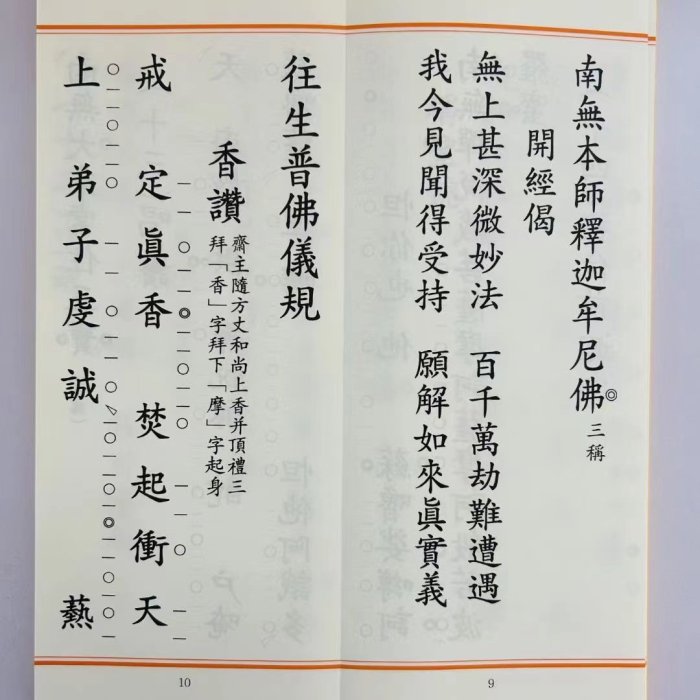 南無本師釋迦牟尼佛◎三稱
開經偈
無上甚深微妙法　百千萬劫難遭遇
我今見聞得受持　願解如來眞實義
9
往生普佛儀規
香讚
齋主隨方丈和尚上香并頂禮三
拜「香」字拜下「摩」字起身
戒　定眞香　焚起衝天
上　弟子虔誠　爇
10